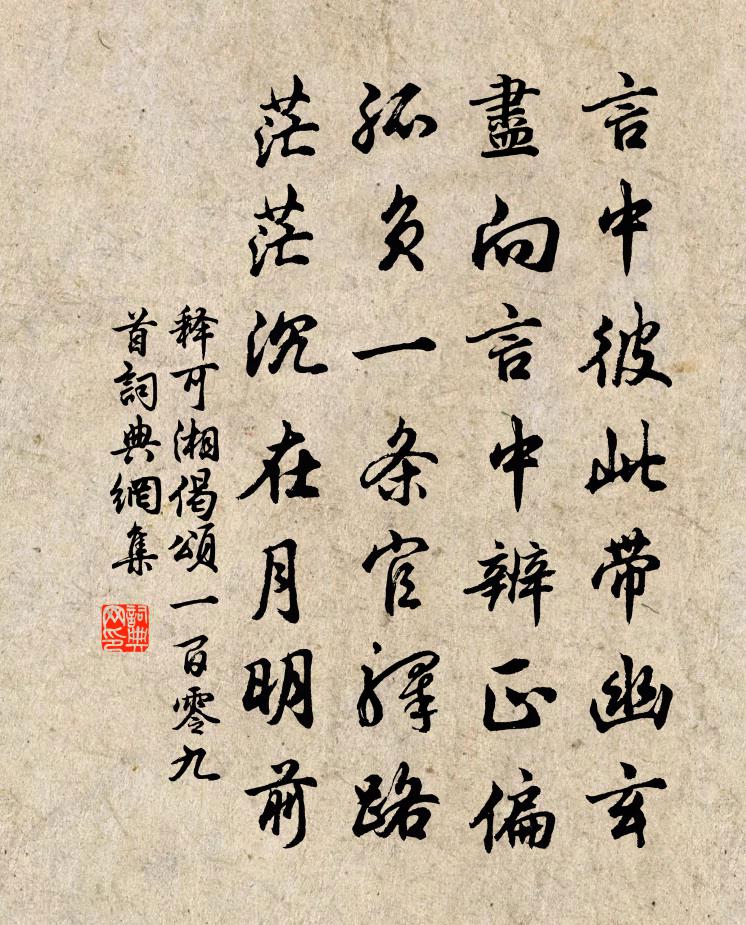 言中彼此带幽玄
盡向言中辨正偏
孤负一条官驛路
茫茫沉在月明前
释可湘偈頌一百零九
首詞典網集
詞典網印